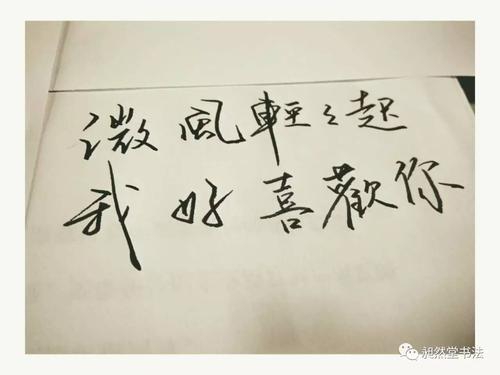 微風輕々起
我好喜歡你
昶然堂书法